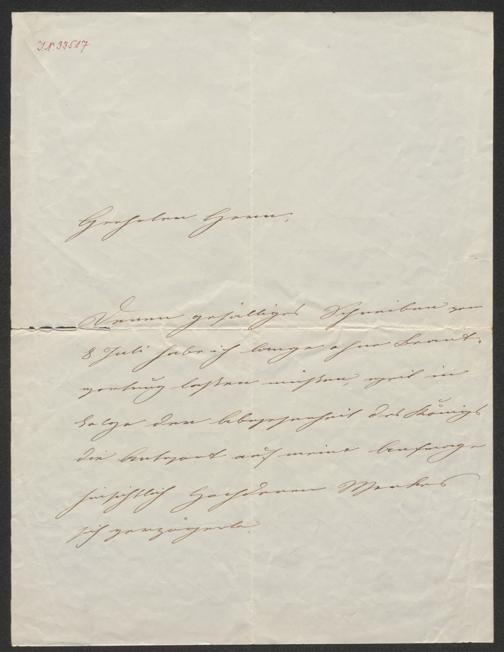 I.N. 33517
Geehrter Herr,
Deren gefälliges Schreiben vom
8 Juli habe ich lange ohne Beant-
wortung lassen müssen, weil in
Folge der Abwesenheit des Königs
die Antwort auf meine Anfrage
hinsichtlich Hochderen Werkes
sich verzögerte.